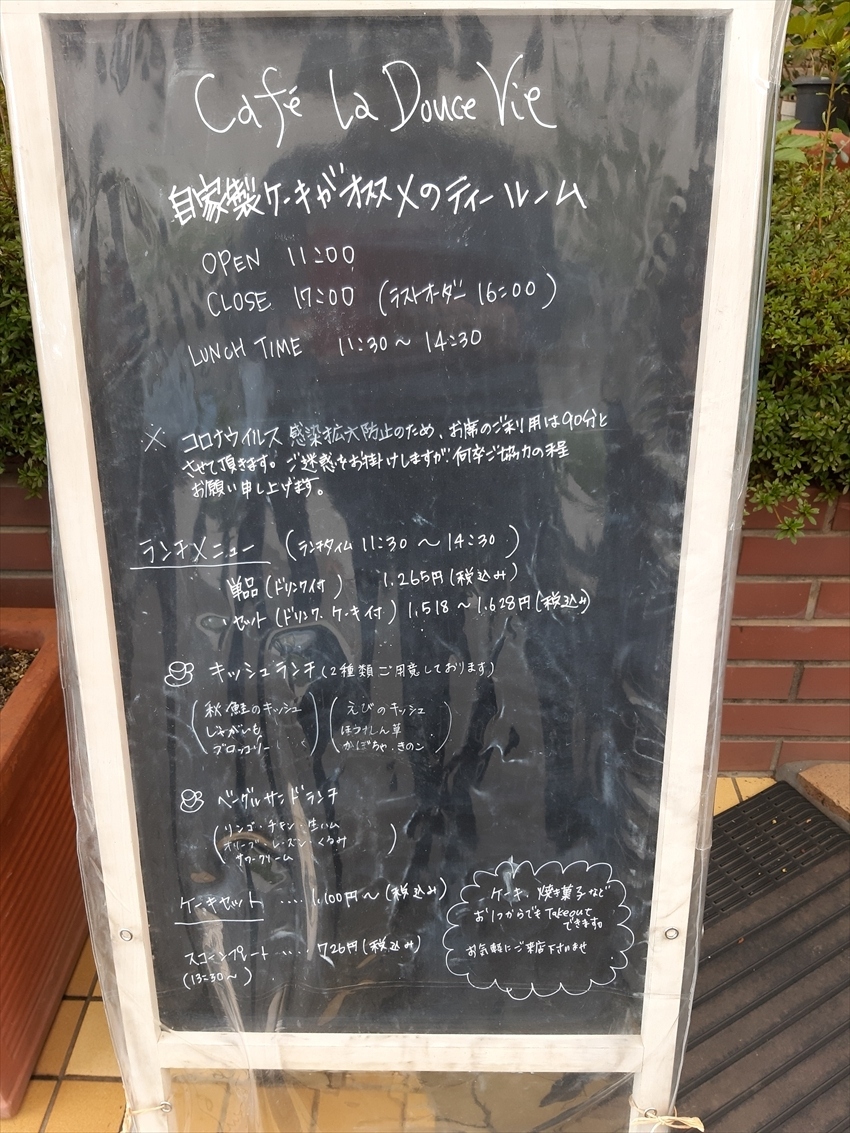 Café La Douce Vie
自家製ケーキがオススメのティールーム
OPEN 11:00
CLOSE 17:00 (ラストオーダー 16:00)
LUNCH TIME 11:30～14:30
※ コロナウイルス感染拡大防止のため、お席のご利用は90分と
させて頂きます。ご迷惑をお掛けしますが、何卒ご協力の程
お願い申し上げます。
ランチメニュー (ランチタイム 11:30～14:30)
単品(ドリンク付) 1.265円(税込み)
セット(ドリンク.ケーキ付) 1.518～1.628円(税込み)
キッシュランチ(2種類ご用意しております)
(秋鮭のキッシュ (えびのキッシュ
じゃがいも ほうれん草
ブロッコリー) かぼちゃ.きのこ)
ベーグルサンドランチ
(リンゴ・チキン・生ハム
オリーブ・レーズン・くるみ
サワークリーム)
ケーキセット .... 1.100円～(税込み)
スコーンプレート ..... 726円(税込み)
(13:30～)
ケーキ、焼き菓子など
お1つからでもTakeout
できます。
お気軽にご来店下さいませ